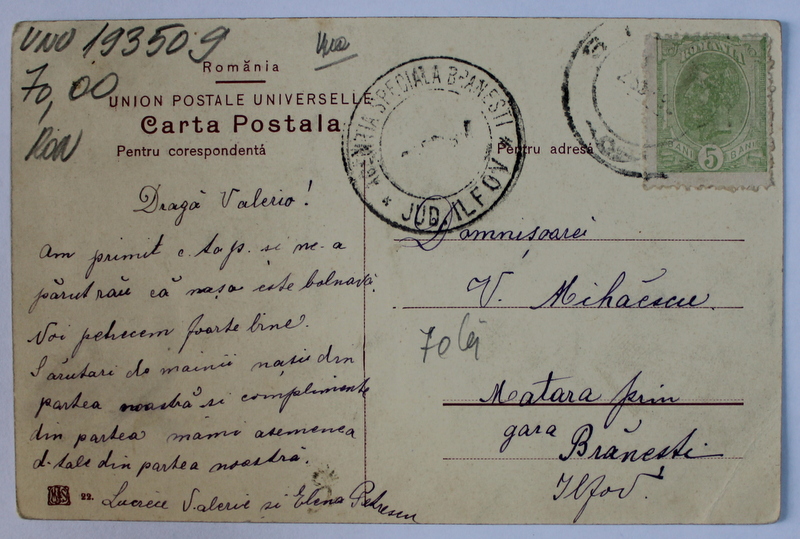 UNU 193509
70,00
RON
România
UNION POSTALE UNIVERSELLE
Carta Postala
Pentru corespondentă
Pentru adresă
AGENTIA SPECIALA BRANESTI
* JUD. ILFOV *
ROMANIA
5 BANI
Dragă Valerio!
Am primit c. ta p. si ne-a
părut rău că nașa este bolnavă.
Noi petrecem foarte bine.
Sărutari de mainii nașii din
partea noastră si complimente
din partea mamii asemenea
d-tale din partea noastră.
22. Valerie si Elena Petrescu
Domnișoarei
V. Mihăescu.
70 lei
Matara prin
gara Brănești
Ilfov.